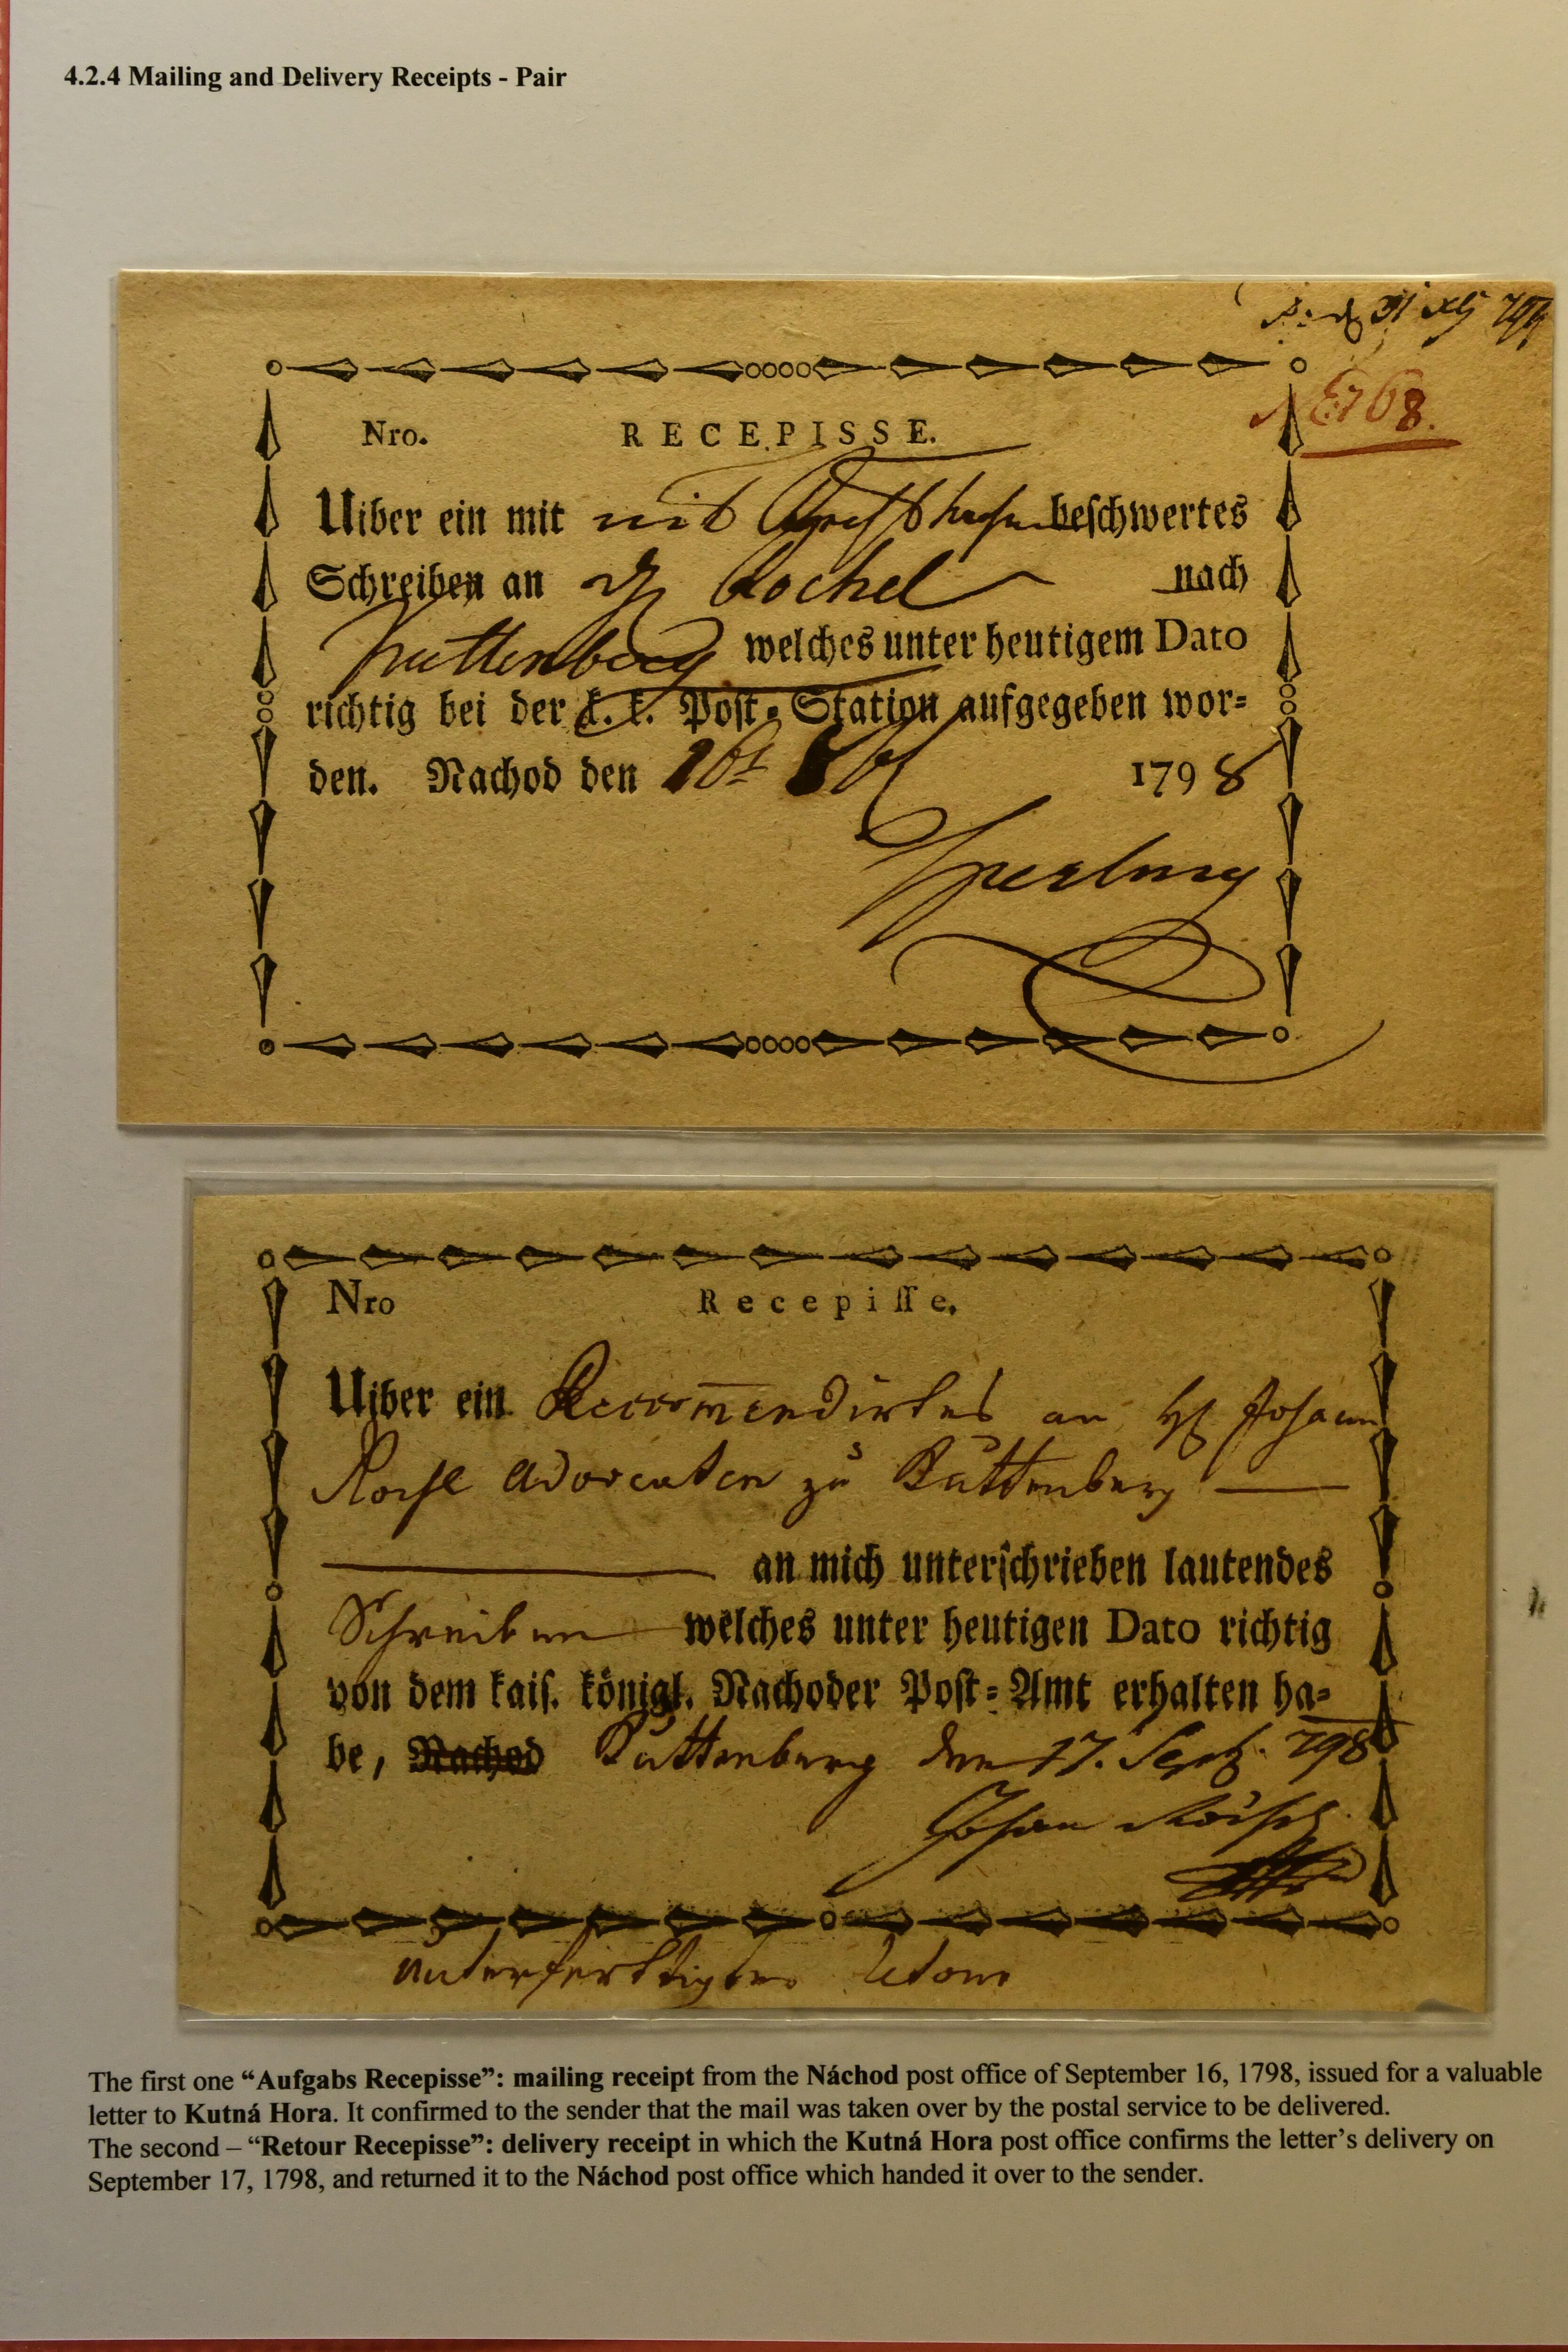 4.2.4 Mailing and Delivery Receipts - Pair
31 798
768.
Nro. RECEPISSE.
Uiber ein mit mit beſchwertes
Schreiben an Kochel nach
Kuttenberg welches unter heutigem Dato
richtig bei der k. k. Poſt-Station aufgegeben wor-
den. Nachod den 16t 1798
Sperling
Nro Recepiſſe.
Uiber ein Recom̅endirtes an H Johann
advocaten zu Kuttenberg
an mich unterſchrieben lautendes
Schreiben welches unter heutigen Dato richtig
von dem kaiſ. königl. Nachoder Poſt-Amt erhalten ha-
be, Nachod Kuttenberg den 17. Sept. 798
Johan
The first one “Aufgabs Recepisse”: mailing receipt from the Náchod post office of September 16, 1798, issued for a valuable
letter to Kutná Hora. It confirmed to the sender that the mail was taken over by the postal service to be delivered.
The second – “Retour Recepisse”: delivery receipt in which the Kutná Hora post office confirms the letter’s delivery on
September 17, 1798, and returned it to the Náchod post office which handed it over to the sender.